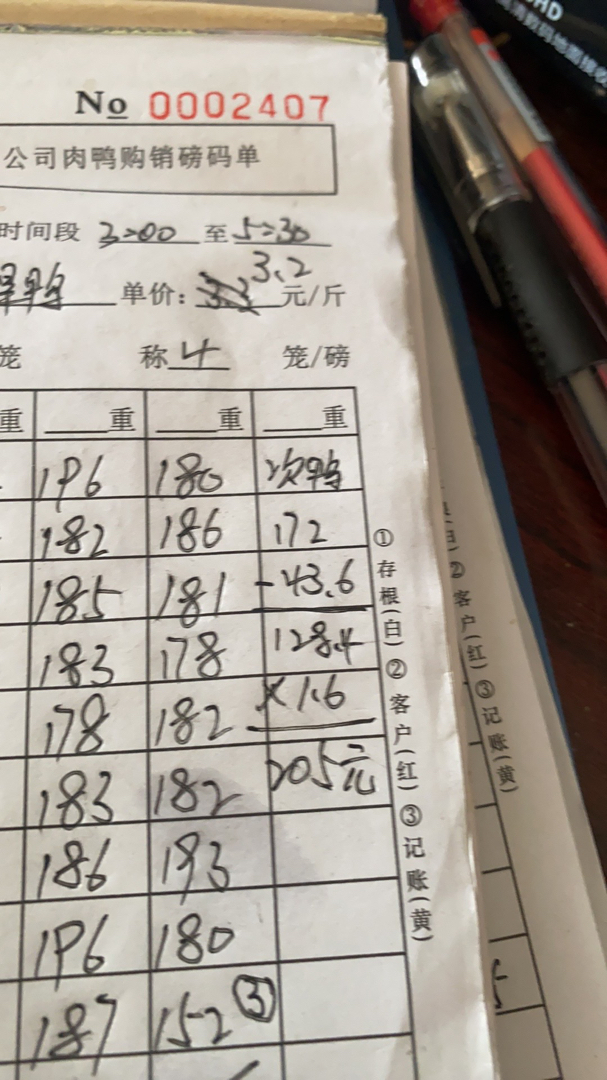 No 0002407
公司肉鸭购销磅码单
时间段 3:00 至 5:30
单价: 3.3 3.2 元/斤
笼 称 4 笼/磅
重 重 重 重
196 180 次鸭
182 186 172
185 181 -43.6
183 178 128.4
178 182 ×1.6
183 182 205元
186 193
196 180
187 152 ③
①存根(白) ②客户(红) ③记账(黄)
②客户(红) ③记账(黄)
5
HD